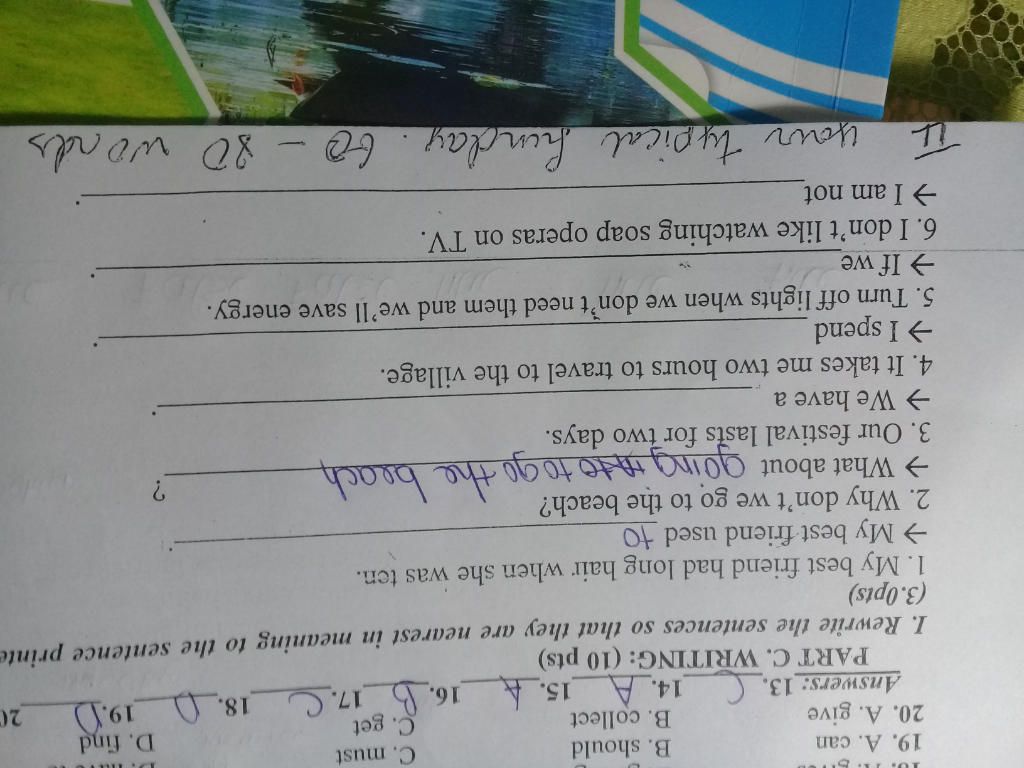 19. A. can B. should C. must D. find
20. A. give B. collect C. get
Answers: 13. C 14. A 15. A 16. B 17. C 18. D 19. D 20
PART C. WRITING: (10 pts)
I. Rewrite the sentences so that they are nearest in meaning to the sentence printe
(3.0pts)
1. My best friend had long hair when she was ten.
→ My best friend used to .
2. Why don't we go to the beach?
→ What about going to to go the beach ?
3. Our festival lasts for two days.
→ We have a .
4. It takes me two hours to travel to the village.
→ I spend .
5. Turn off lights when we don't need them and we'll save energy.
→ If we .
6. I don't like watching soap operas on TV.
→ I am not .
II your typical . 60 - 80 words